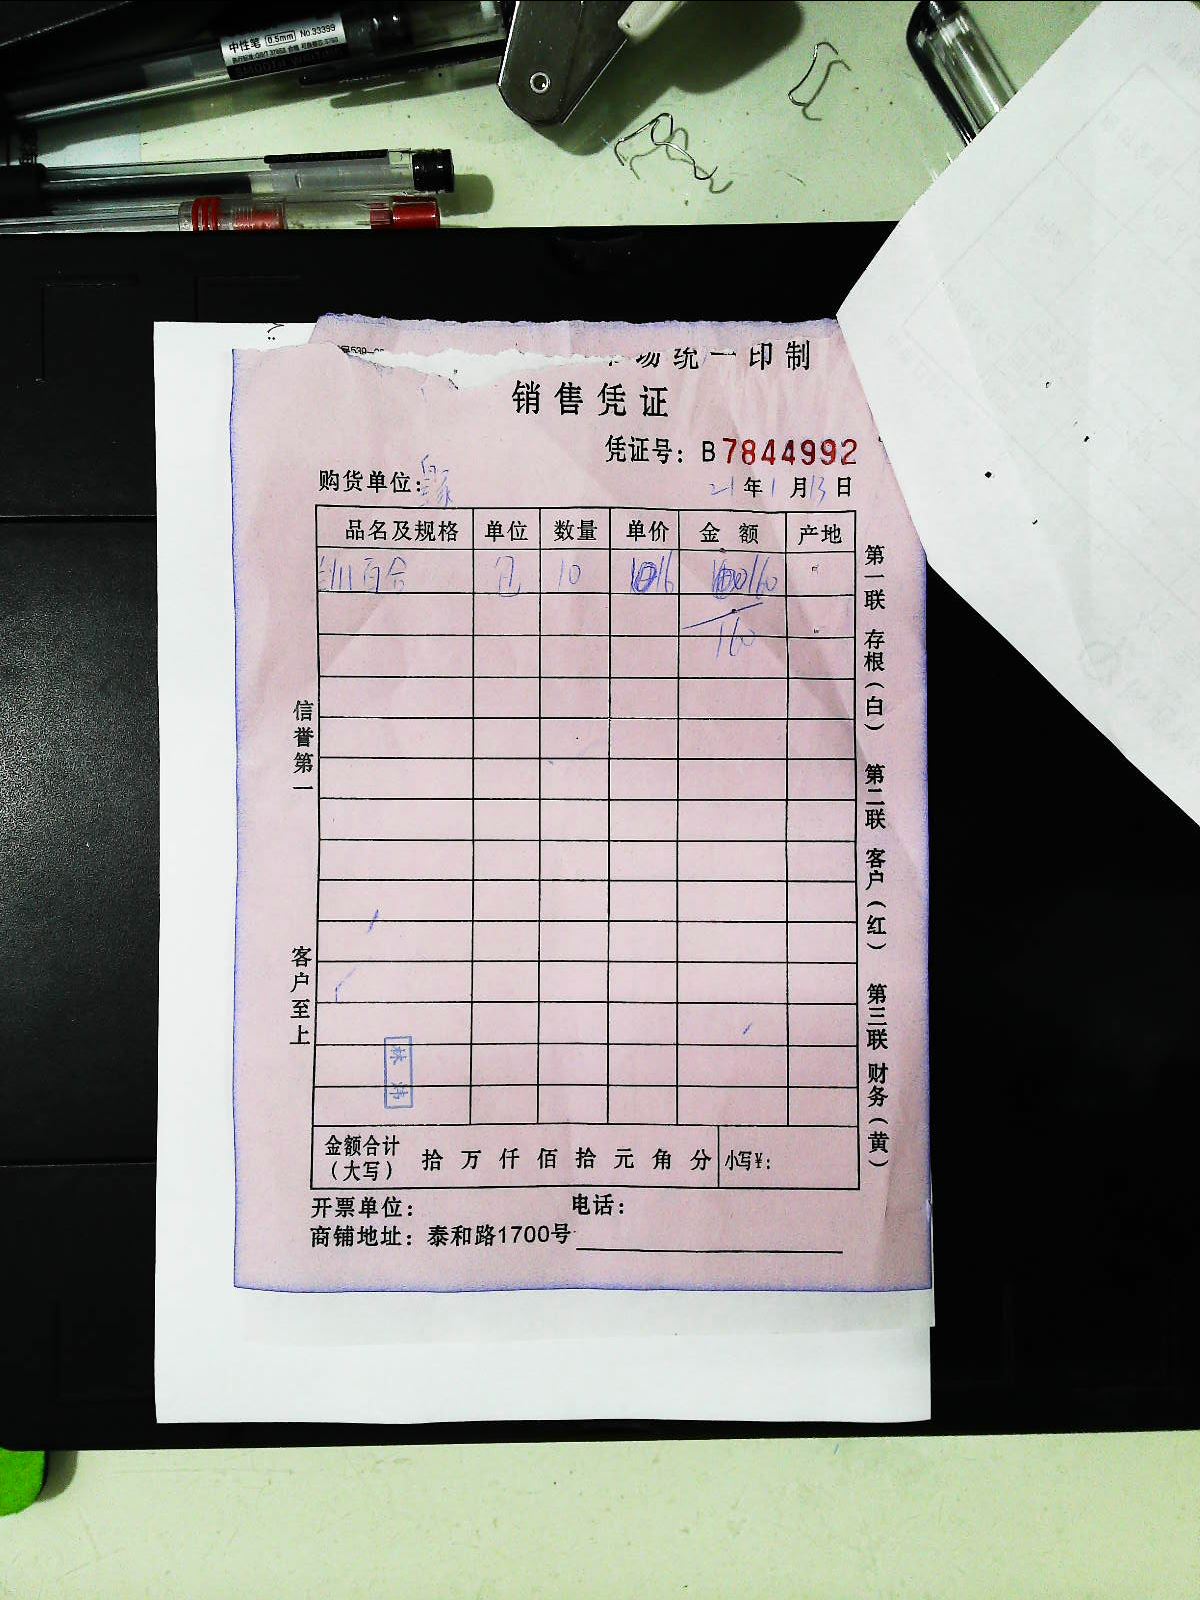 中性笔 0.5mm No.33399
场统一印制
销售凭证
凭证号：B7844992
购货单位：
21年1月13日
品名及规格 单位 数量 单价 金额 产地
百合 包 10 16 160
160
信誉第一
客户至上
第一联 存根（白） 第二联 客户（红） 第三联 财务（黄）
金额合计（大写） 拾 万 仟 佰 拾 元 角 分 小写¥：
开票单位： 电话：
商铺地址：泰和路1700号